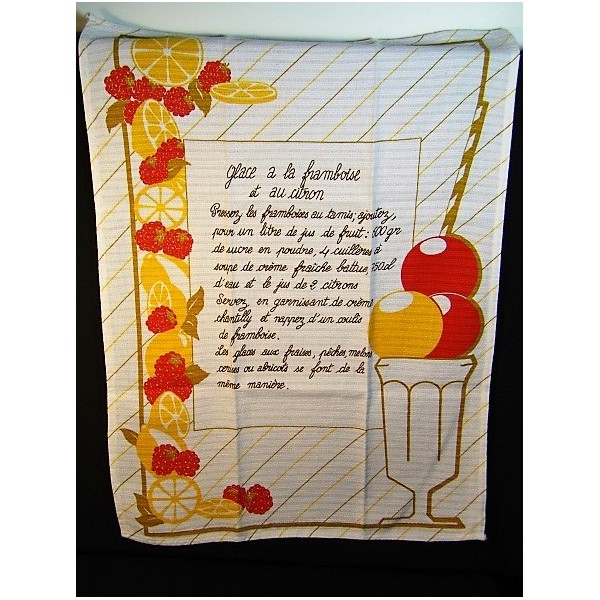 Glace a la framboise
et au citron
Pressez les framboises au tamis, ajoutez,
pour un litre de jus de fruit : 600 gr
de sucre en poudre, 4 cuillères à
soupe de crème fraîche battue, 750cl
d'eau et le jus de 2 citrons
Servez, en garnissant de crème
chantilly et nappez d'un coulis
de framboise.
Les glaces aux fraises, pêches, melons
cerises ou abricots se font de la
même manière.